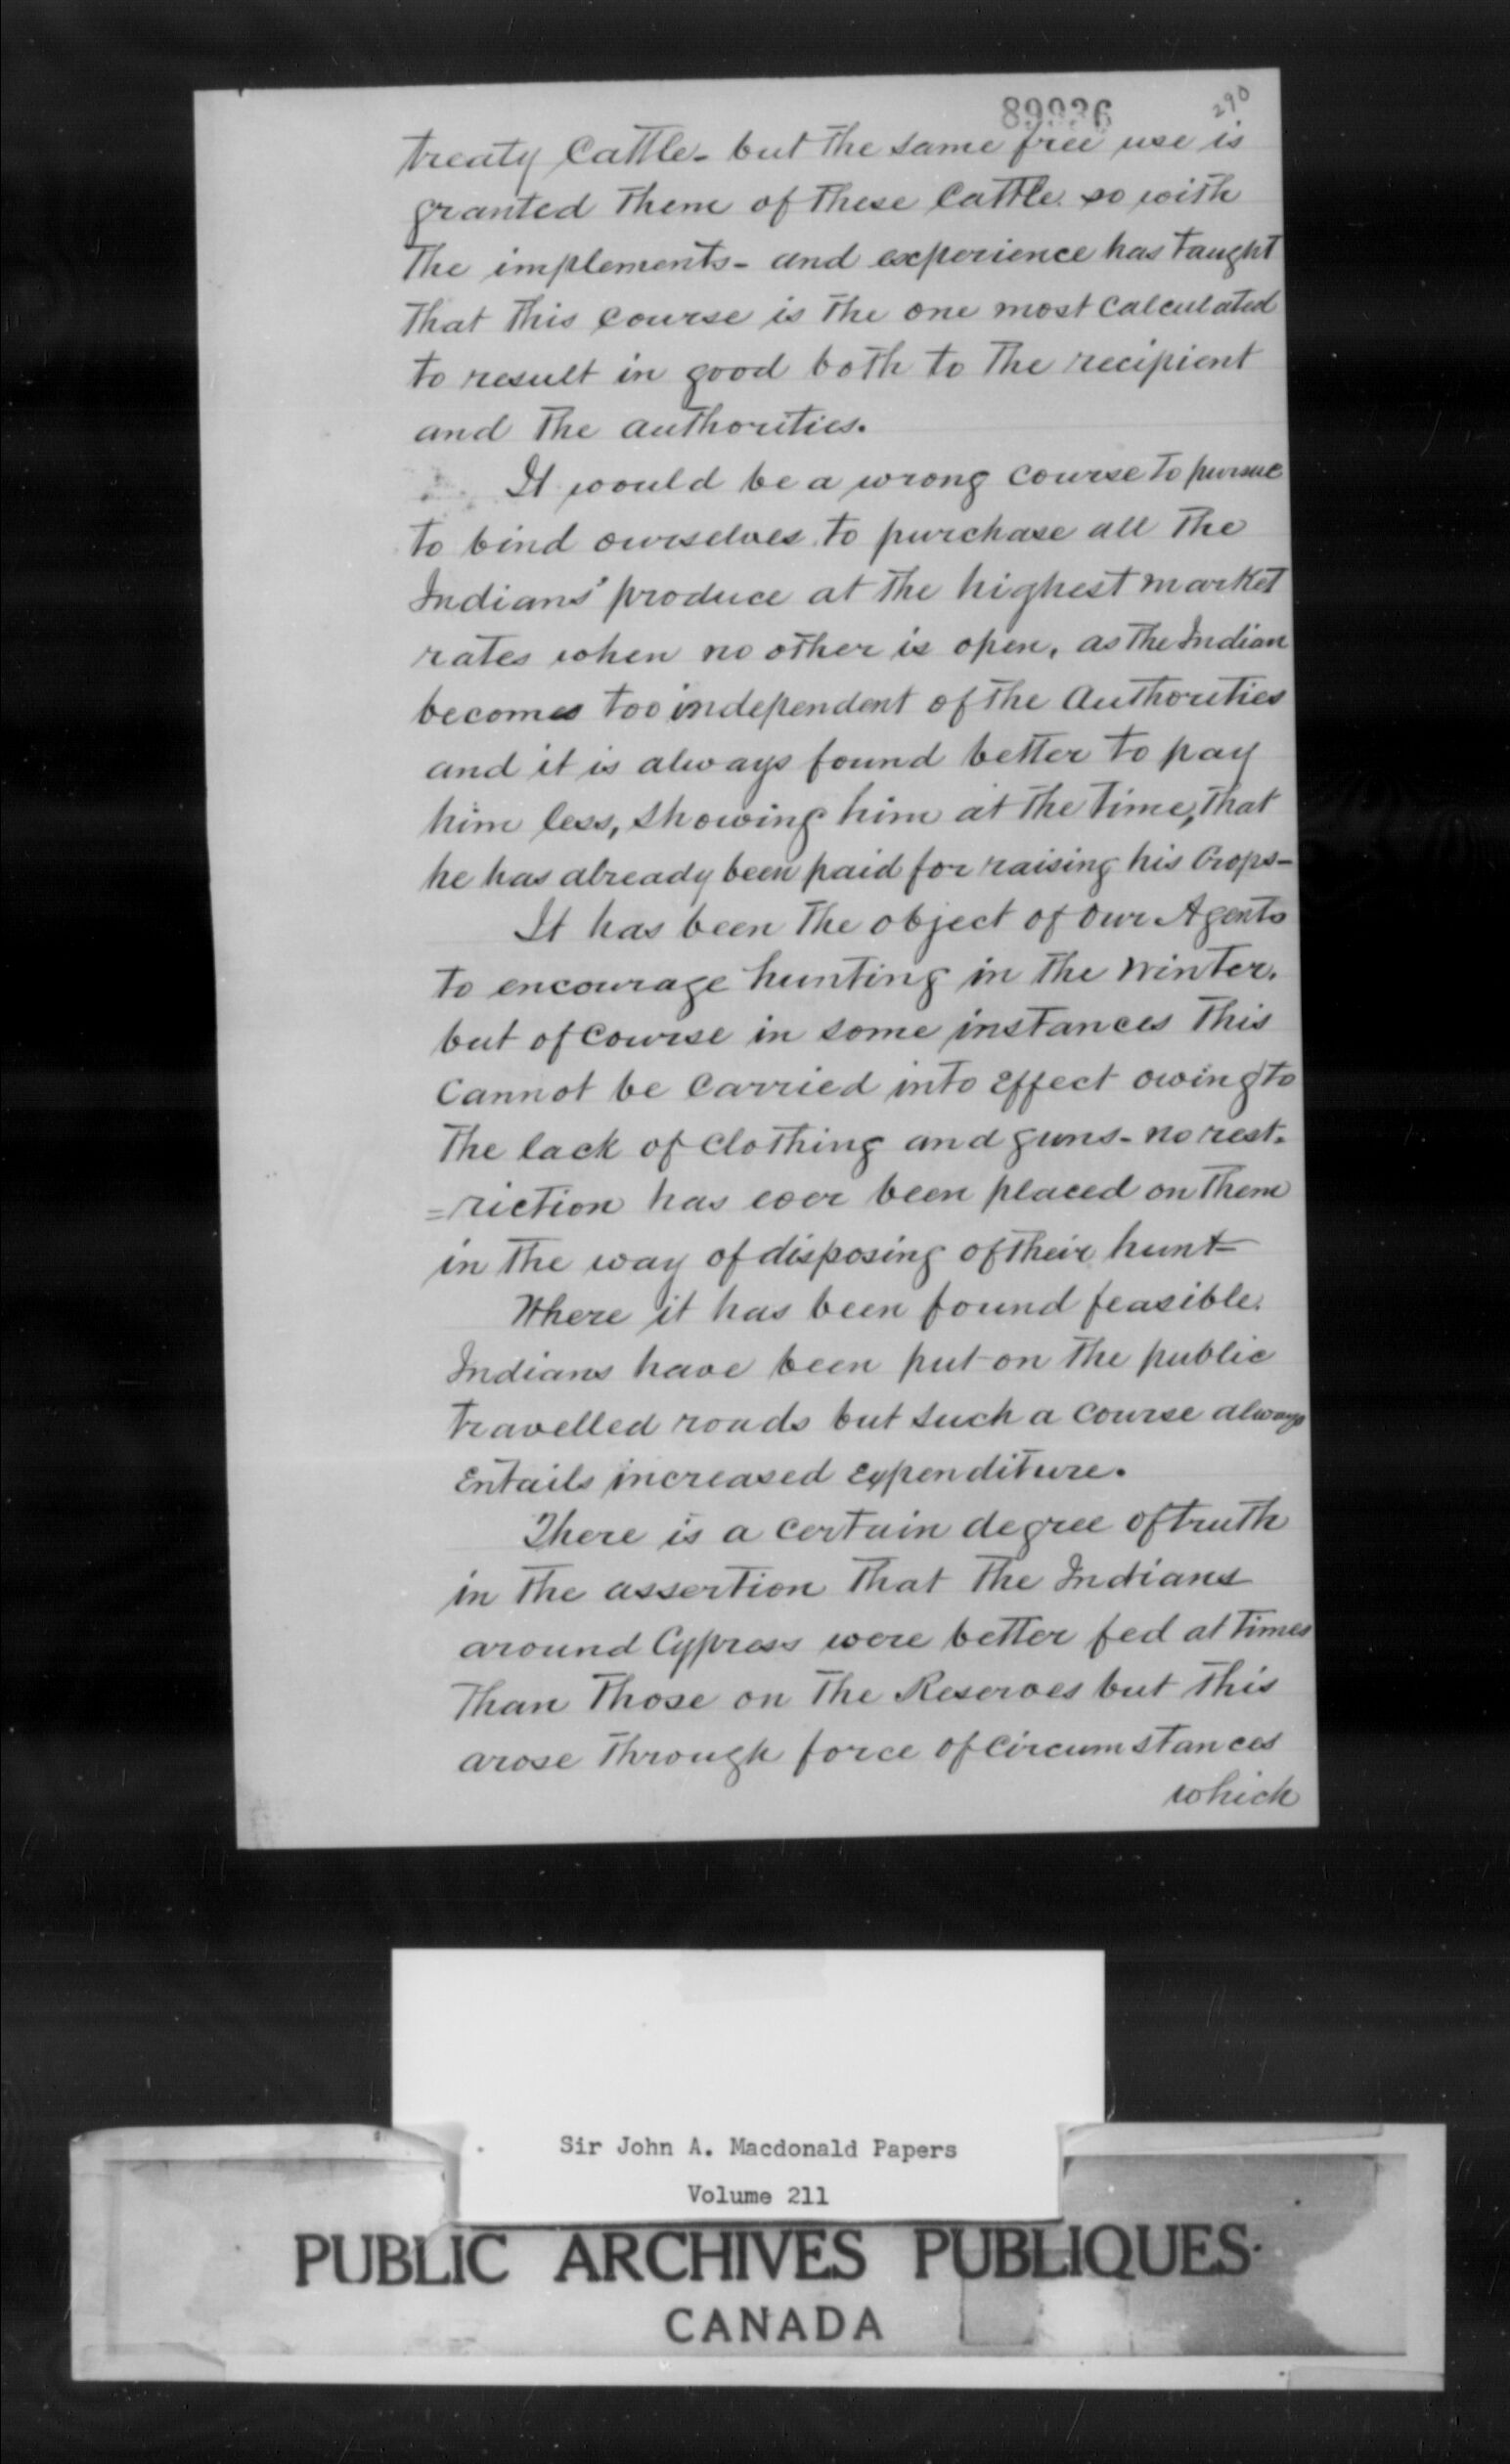 89936
290
treaty Cattle - but the same free use is
granted them of these Cattle. so with
the implements - and experience has taught
that this course is the one most calculated
to result in good both to the recipient
and the authorities.
It would be a wrong course to pursue
to bind ourselves to purchase all the
Indians' produce at the highest market
rates when no other is open, as the Indian
becomes too independent of the Authorities
and it is always found better to pay
him less, showing him at the time, that
he has already been paid for raising his Crops -
It has been the object of our Agents
to encourage hunting in the Winter.
but of course in some instances this
Cannot be carried into effect owing to
the lack of clothing and guns - no rest-
=riction has ever been placed on them
in the way of disposing of their hunt -
Where it has been found feasible.
Indians have been put on the public
travelled roads but such a course always
Entails increased Expenditure.
There is a certain degree of truth
in the assertion that the Indians
around Cypress were better fed at times
than those on the Reserves but this
arose through force of circumstances
which
Sir John A. Macdonald Papers
Volume 211
PUBLIC ARCHIVES PUBLIQUES
CANADA